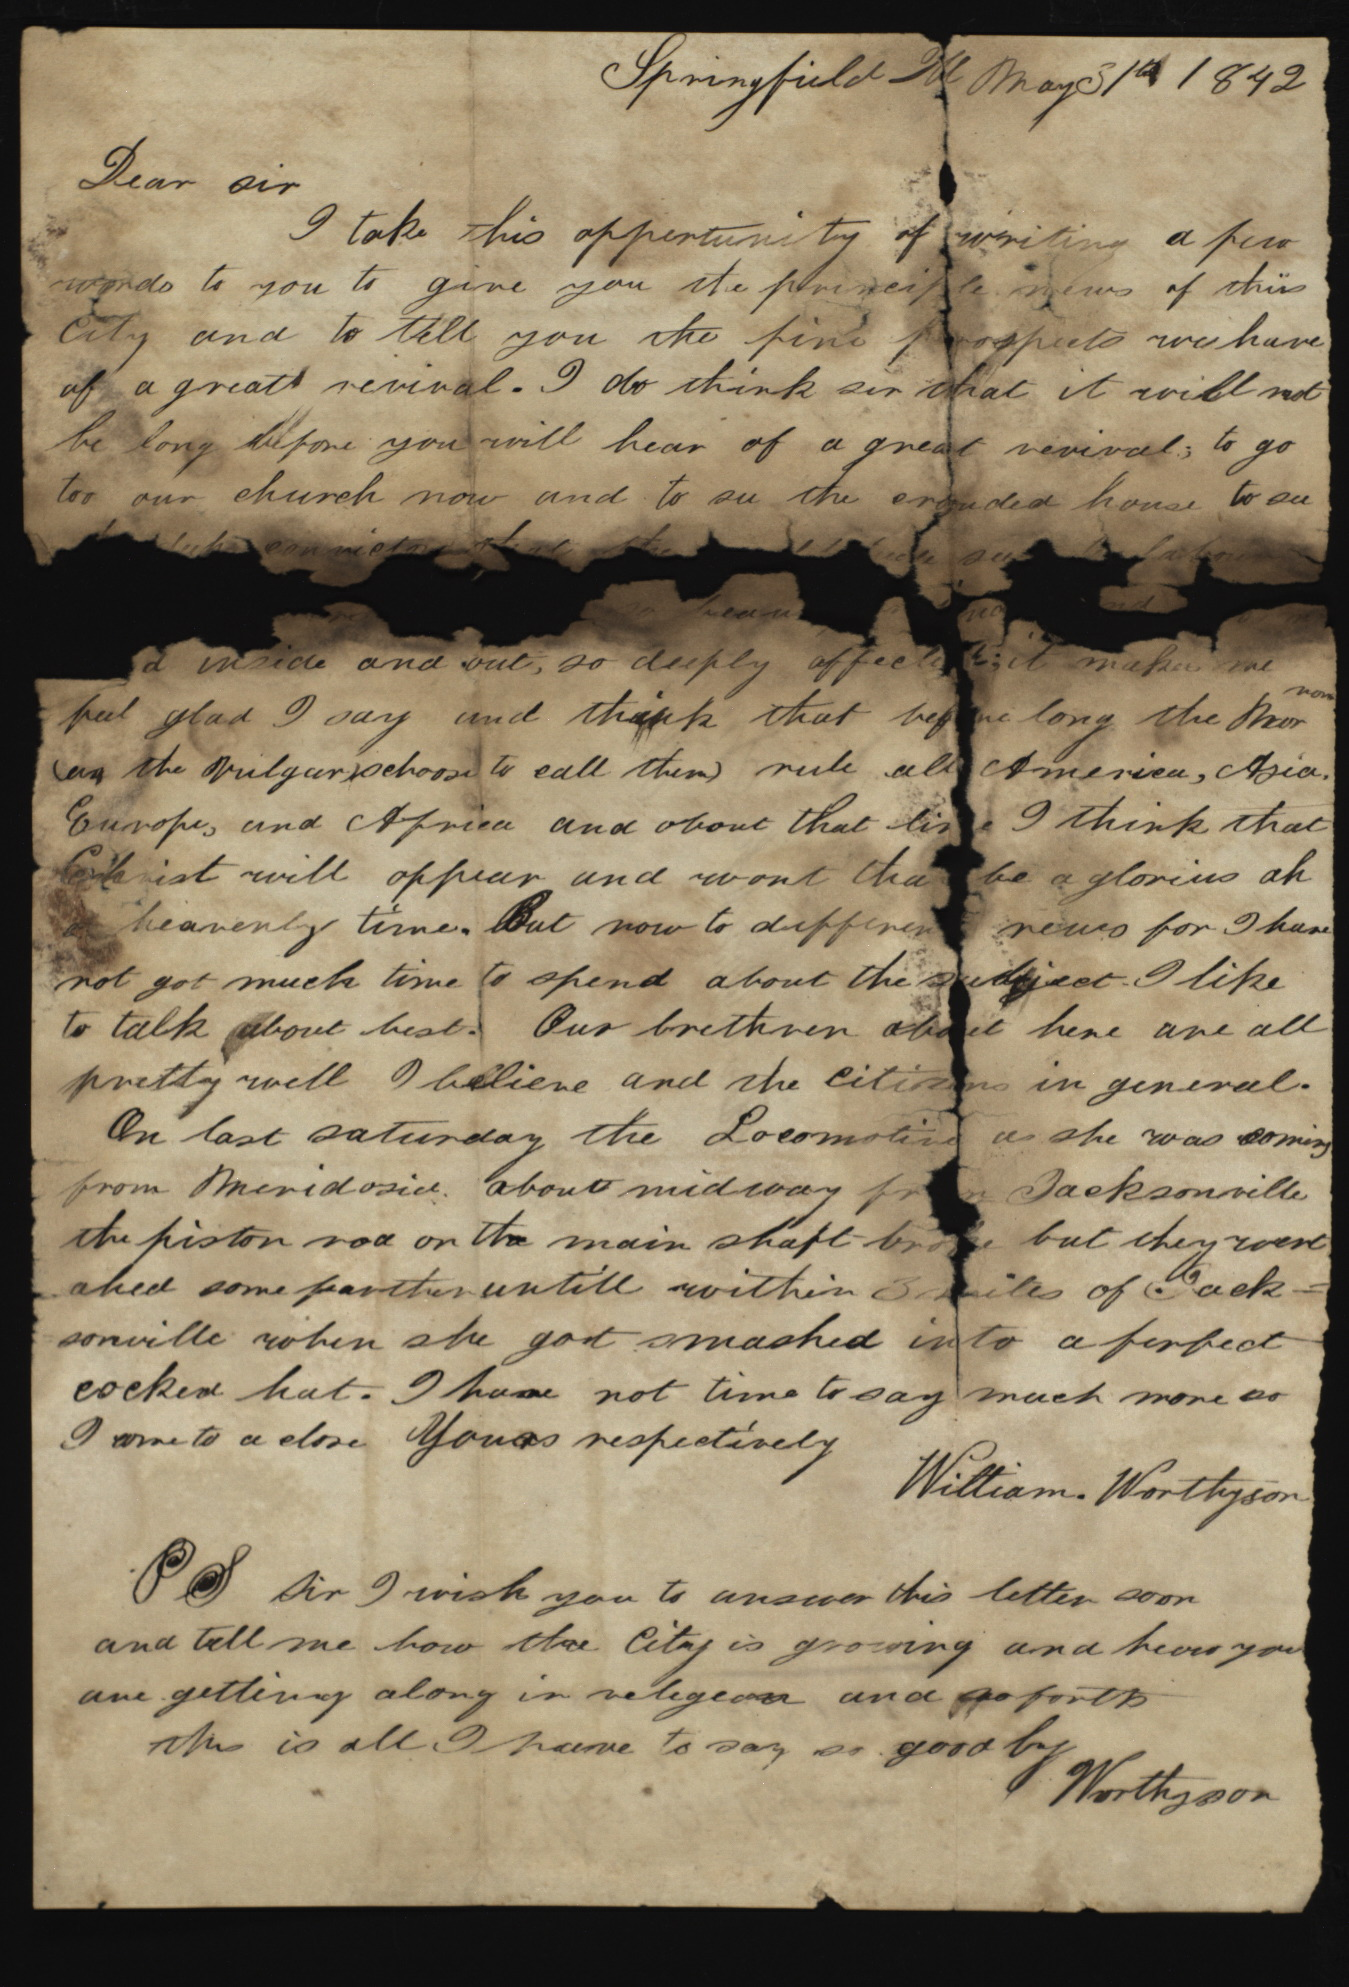 Springfield Ill May 31th 1842
Dear sir
I take this oppertunity of writing a few
words to you to give you the principle news of this
City and to tell you the fine prospects we have
of a great revival. I do think sir that it will not
be long before you will hear of a great revival; to go
too our church now and to see the crouded house to see
that the
so beau
d inside and out, so deeply affects it makes me
feel glad I say and think that before long the Mormons
(as the vulgar choose to call them) rule all America, Asia,
Europe, and Africa and about that time I think that
Christ will appear and wont that be a glorius ah
a heavenly time. But now to different news for I have
not got much time to spend about the subject I like
to talk about best. Our brethren about here are all
pretty well I believe and the citizens in general.
On last saturday the Locomotive as she was coming
from Meridosia about midway from Jacksonville
the piston rod or the main shaft broke but they went
ahed some farther untill within 3 miles of Jack=
sonville when she got smashed into a perfect
cocked hat. I have not time to say much more so
I come to a close Yours respectively
William. Worthyson
PS Sir I wish you to answer this letter soon
and tell me how the City is growing and how you
are getting along in relegeon and so forth
this is all I have to say so good by
Worthyson